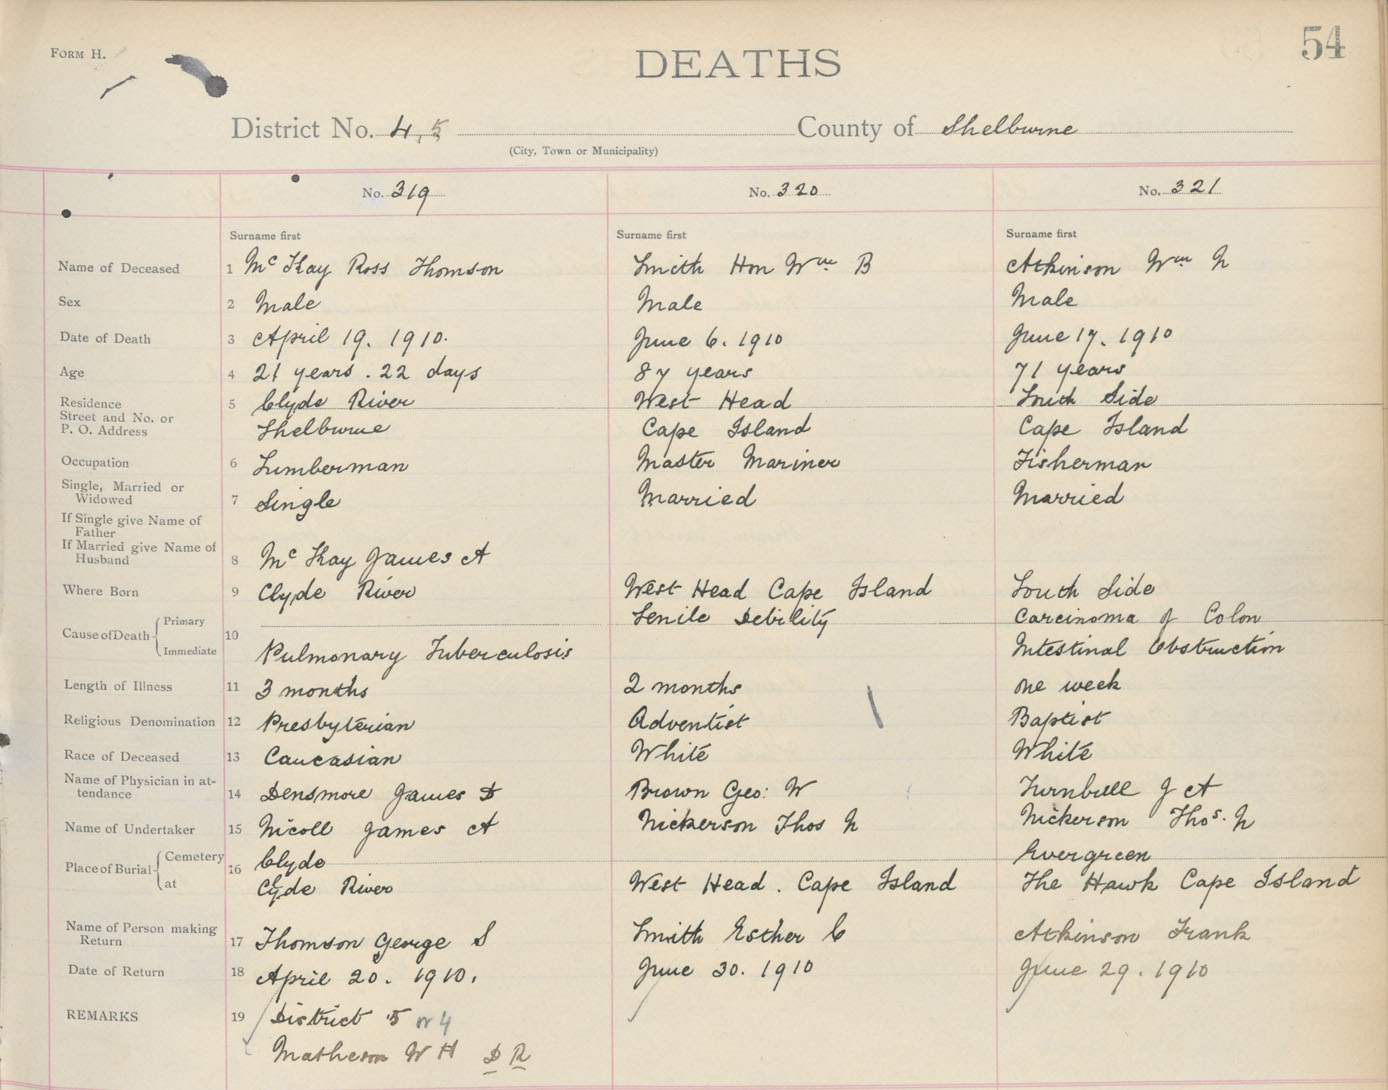 FORM H.
54
DEATHS
District No. 4, 5 County of Shelburne
(City, Town or Municipality)
No. 319
No. 320
No. 321
Surname first
Surname first
Surname first
Name of Deceased 1 Mc Kay Ross Thomson
Smith Hon Wm B
Atkinson Wm N
Sex 2 Male
Male
Male
Date of Death 3 April 19. 1910.
June 6. 1910
June 17. 1910
Age 4 21 years. 22 days
87 years
71 years
Residence 5 Clyde River
West Head
South Side
Street and No. or
P. O. Address Shelburne
Cape Island
Cape Island
Occupation 6 Lumberman
Master Mariner
Fisherman
Single, Married or
Widowed 7 Single
Married
Married
If Single give Name of
Father
If Married give Name of
Husband 8 Mc Kay James A
Where Born 9 Clyde River
West Head Cape Island
South Side
Cause of Death Primary
Senile Debility
Carcinoma of Colon
10
Immediate Pulmonary Tuberculosis
Intestinal Obstruction
Length of Illness 11 3 months
2 months
one week
Religious Denomination 12 Presbyterian
Adventist
Baptist
Race of Deceased 13 Caucasian
White
White
Name of Physician in at-
tendance 14 Densmore James D
Brown Geo: W
Turnbull J A
Name of Undertaker 15 Nicoll James A
Nickerson Thos N
Nickerson Thos. N
Place of Burial Cemetery 16 Clyde
Evergreen
at Clyde River
West Head. Cape Island
The Hawk Cape Island
Name of Person making
Return 17 Thomson George S
Smith Esther C
Atkinson Frank
Date of Return 18 April 20. 1910.
June 30. 1910
June 29. 1910
REMARKS 19 District 5 or 4
Matheson W H D R